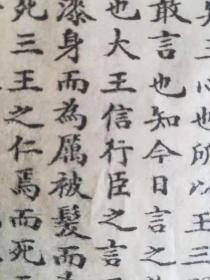 也所以王三
敢言也知今日言之
也大王信行臣之言
漆身而為厲被髮而
死三王之仁焉而死